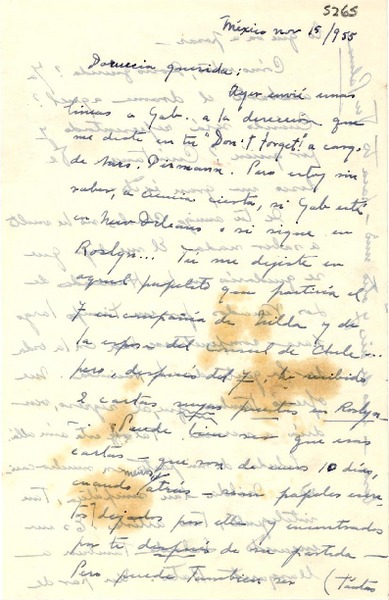 5265
México nov 15/955
Doruccia querida:
Ayer envié unas
líneas a Gab. a la dirección que
me diste en tu "Don't Forget!" a cargo
de Mrs. Pero estoy sin
saber, a ciencia cierta, si Gab está
en New Orleans o si sigue en
Roslyn... Tú me dijiste en
aquel papelito que partiría el
7 en compañía de Gilda y de
la esposa del consul de Chile...
pero, después del 7 he recibido
2 cartas suyas puestas en Roslyn
¿Puede bien ser que esas
cartas - que son de unos 10 días,
cuando menos, atrás - sean papeles
dejados por ella y encontrados
por ti después de su partida -
Pero puede también ser (Tantas